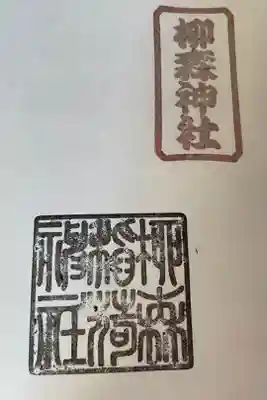 柳森神社
柳森
稲荷
神社